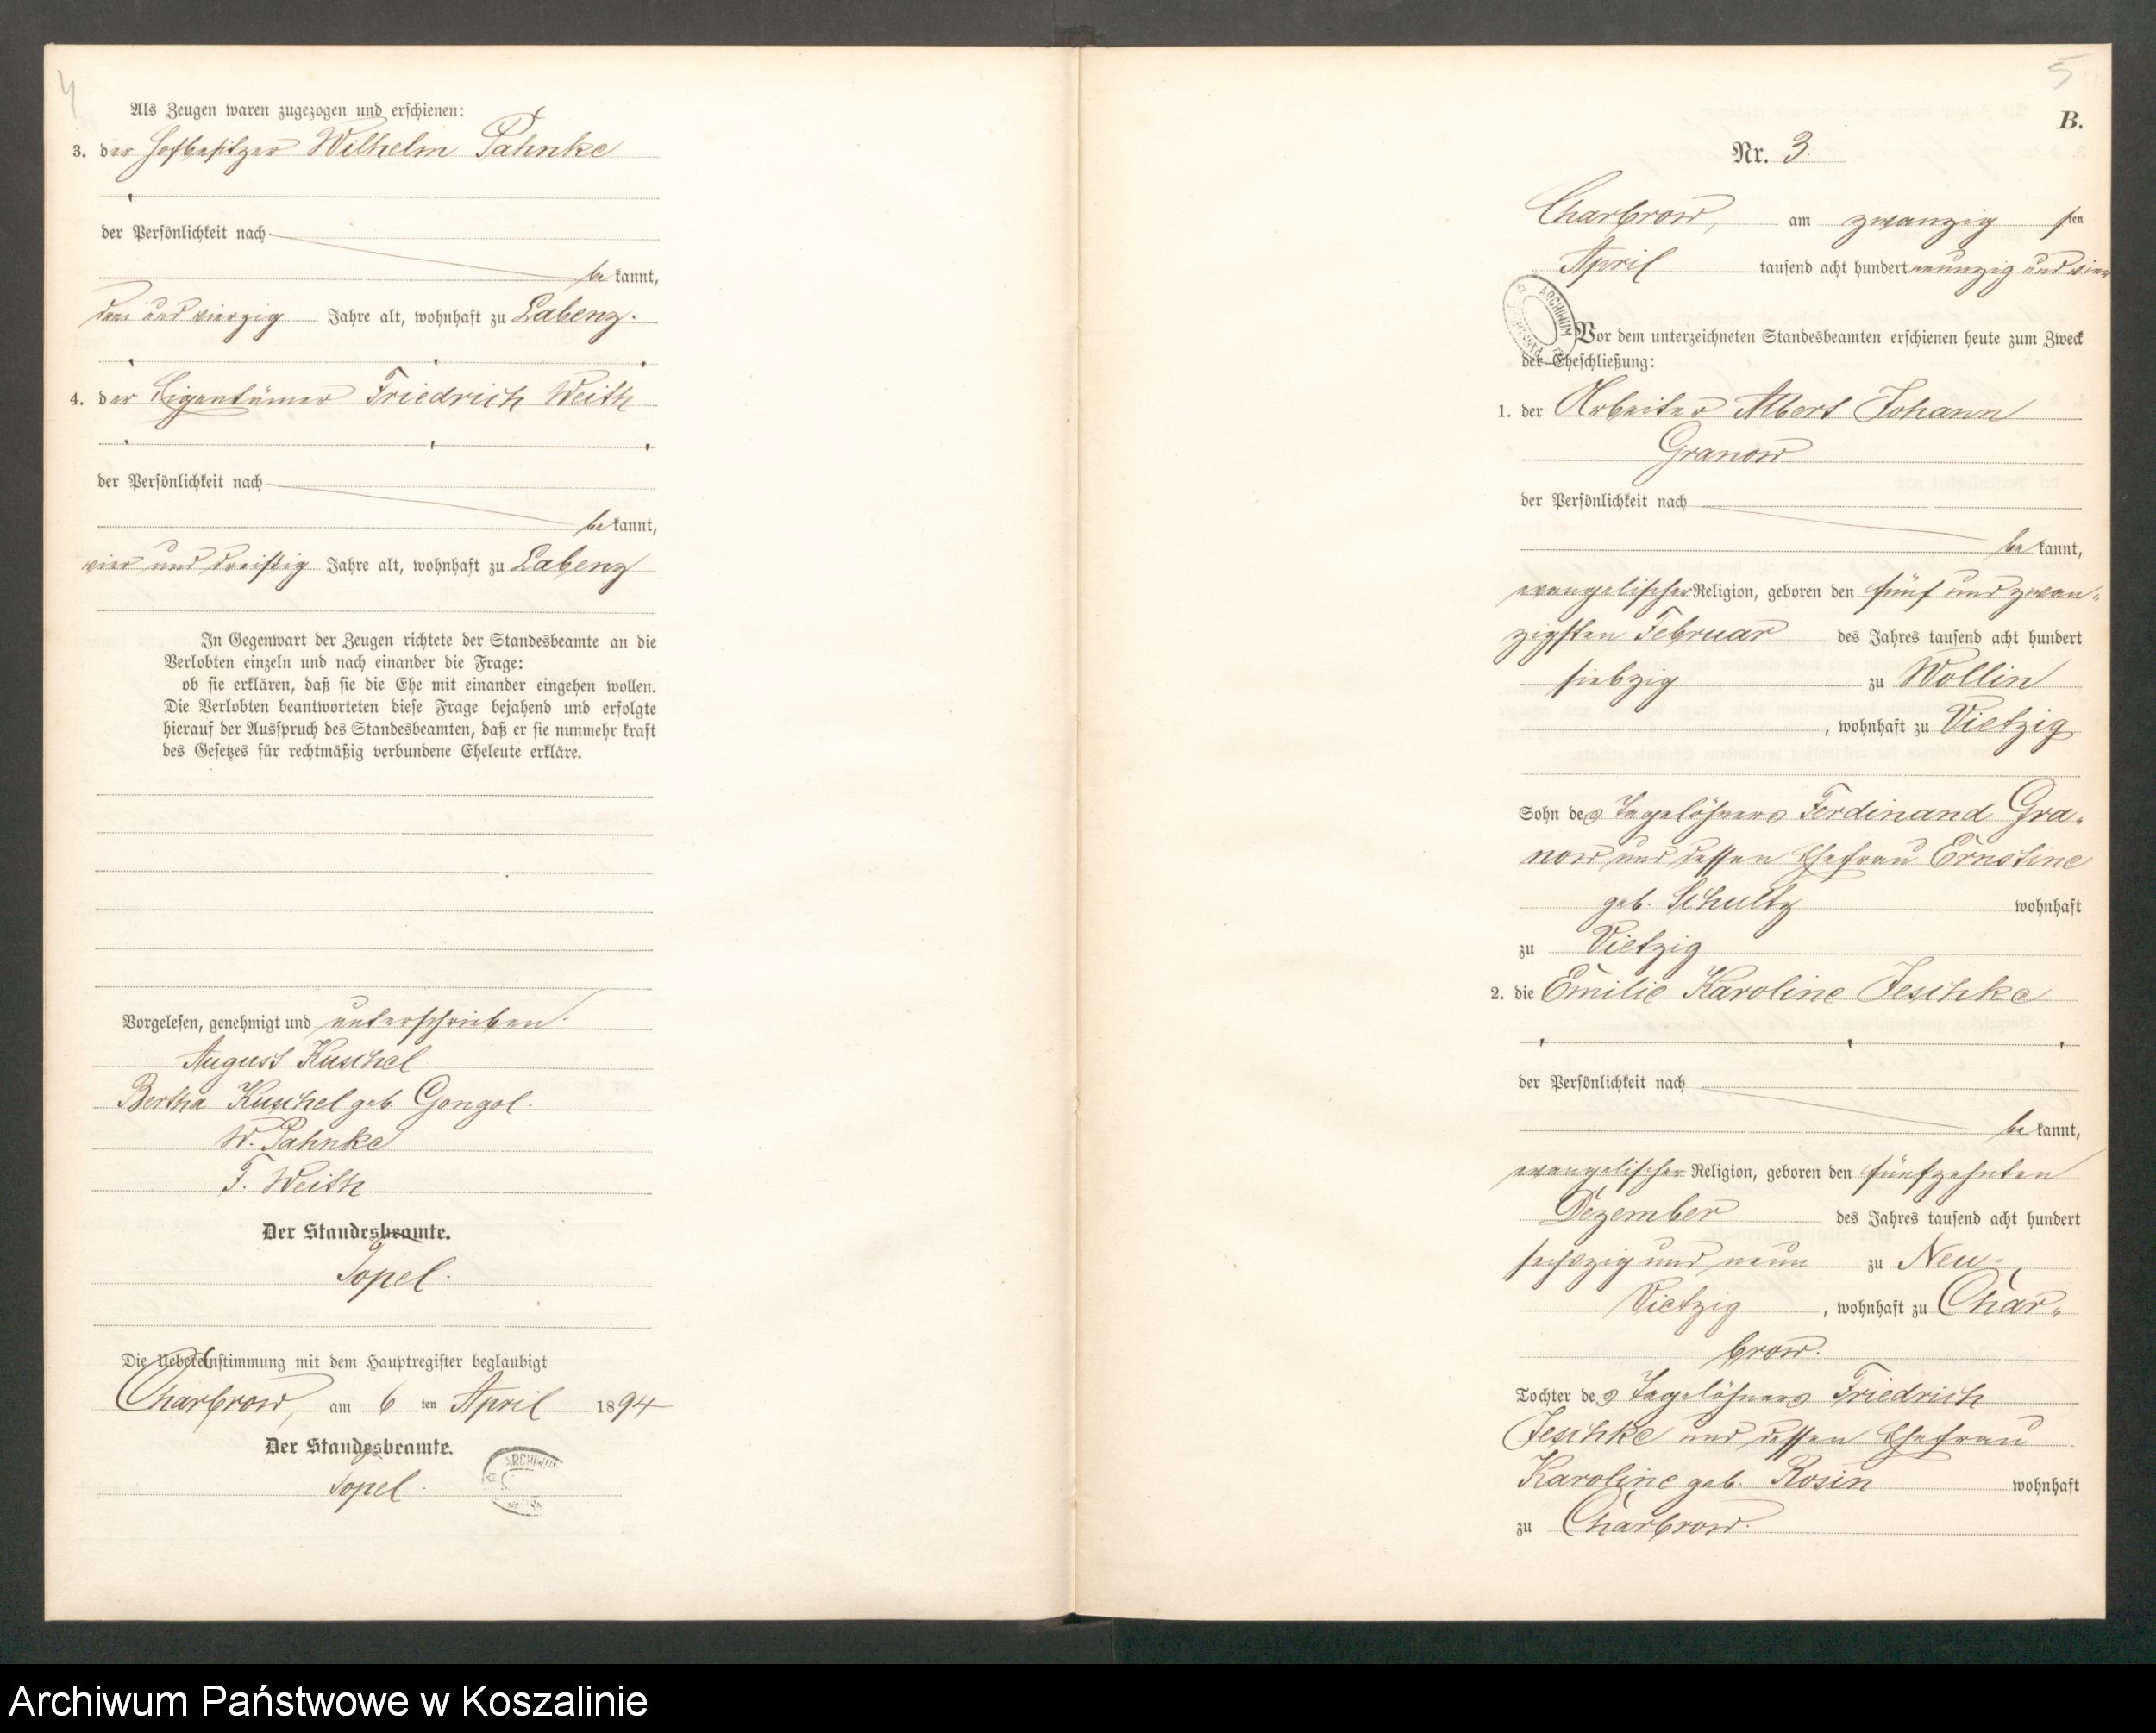 4
Als Zeugen waren zugezogen und erschienen:
3. der Hofbesitzer Wilhelm Pahnke
der Persönlichkeit nach
be kannt,
drei und vierzig Jahre alt, wohnhaft zu Labenz.
4. der Eigentümer Friedrich Weith
der Persönlichkeit nach
be kannt,
vier und dreißig Jahre alt, wohnhaft zu Labenz
In Gegenwart der Zeugen richtete der Standesbeamte an die
Verlobten einzeln und nach einander die Frage:
ob sie erklären, daß sie die Ehe mit einander eingehen wollen.
Die Verlobten beantworteten diese Frage bejahend und erfolgte
hierauf der Ausspruch des Standesbeamten, daß er sie nunmehr kraft
des Gesetzes für rechtmäßig verbundene Eheleute erkläre.
Vorgelesen, genehmigt und unterschrieben.
August Kuschel
Bertha Kuschel geb Gongol.
W. Pahnke
F. Weith
Der Standesbeamte.
Topel.
Die Uebereinstimmung mit dem Hauptregister beglaubigt
Charbrow, am 6 ten April 1894
Der Standesbeamte.
Topel.
ARCHIWUM
5
B.
Nr. 3.
Charbrow, am zwanzig sten
April tausend acht hundert neunzig und vier
ARCHIWUM
Vor dem unterzeichneten Standesbeamten erschienen heute zum Zweck
der Eheschließung:
1. der Arbeiter Albert Johann
Granow
der Persönlichkeit nach
be kannt,
evangelischer Religion, geboren den fünf und zwan-
zigsten Februar des Jahres tausend acht hundert
siebzig zu Wollin
, wohnhaft zu Vietzig
Sohn des Tagelöhners Ferdinand Gra-
now und dessen Ehefrau Ernstine
geb. Schultz wohnhaft
zu Vietzig
2. die Emilie Karoline Jeschke
der Persönlichkeit nach
be kannt,
evangelischer Religion, geboren den fünfzehnten
Dezember des Jahres tausend acht hundert
sechszig und neun zu Neu-
Vietzig, wohnhaft zu Char-
brow.
Tochter des Tagelöhners Friedrich
Jeschke und dessen Ehefrau
Karoline geb. Rosin wohnhaft
zu Charbrow.
Archiwum Państwowe w Koszalinie